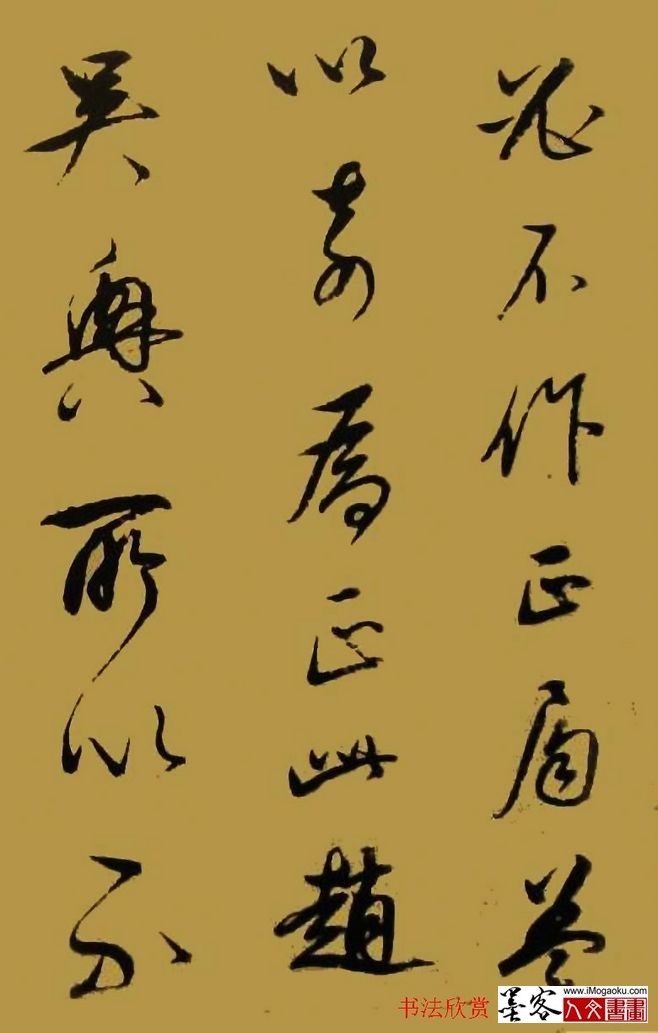 必不作正局蓋
以奇為正此趙
吳興所以不
书法欣赏
墨客
www.iMogaoku.com
人文書畫